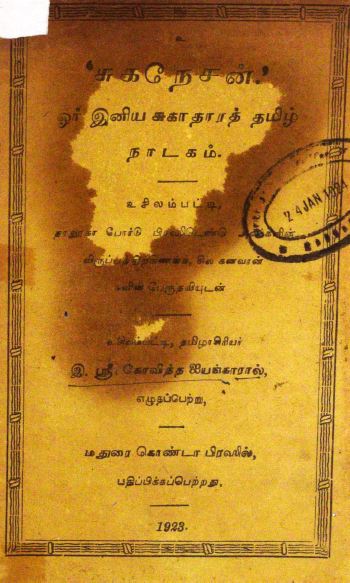 உ
'சுகநேசன்.'
ஓர் இனிய சுகாதாரத் தமிழ்
நாடகம்.
உசிலம்பட்டி,
தாலூகா போர்டு பிரஸிடெண்டு
விருப்பத்திற்கிணங்க, சில கனவான்
களின் பேருதவியுடன்
உசிலம்பட்டி, தமிழாசிரியர்
இ. ஸ்ரீ. கோவிந்த ஐயங்காரால்,
எழுதப்பெற்று,
மதுரை கொண்டா பிரஸில்,
பதிப்பிக்கப்பெற்றது.
1923.
24 JAN